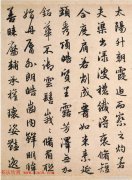 太陽升朝霞迫而察之灼若
夫渠出渌波穠纖得衷脩
短合度肩若削成腰如束素延
頸秀項皓質呈露芳澤無加
鉛華不御雲髻峩峩脩眉聯
娟丹脣外朗皓齒內鮮明眸
善睞靨輔承權瓌姿豔逸